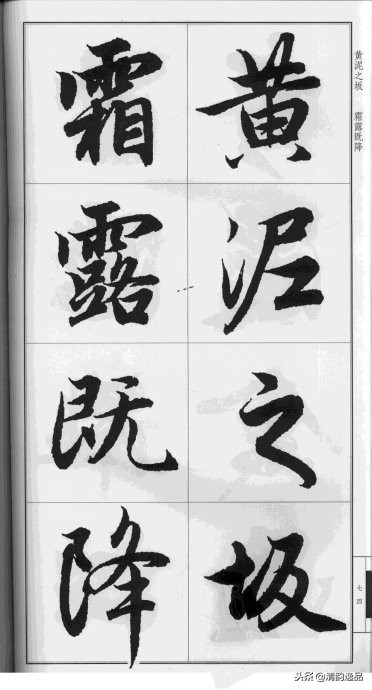 黄泥之坂　霜露既降
黄泥之坂
霜露既降
七四
头条@清韵逸品